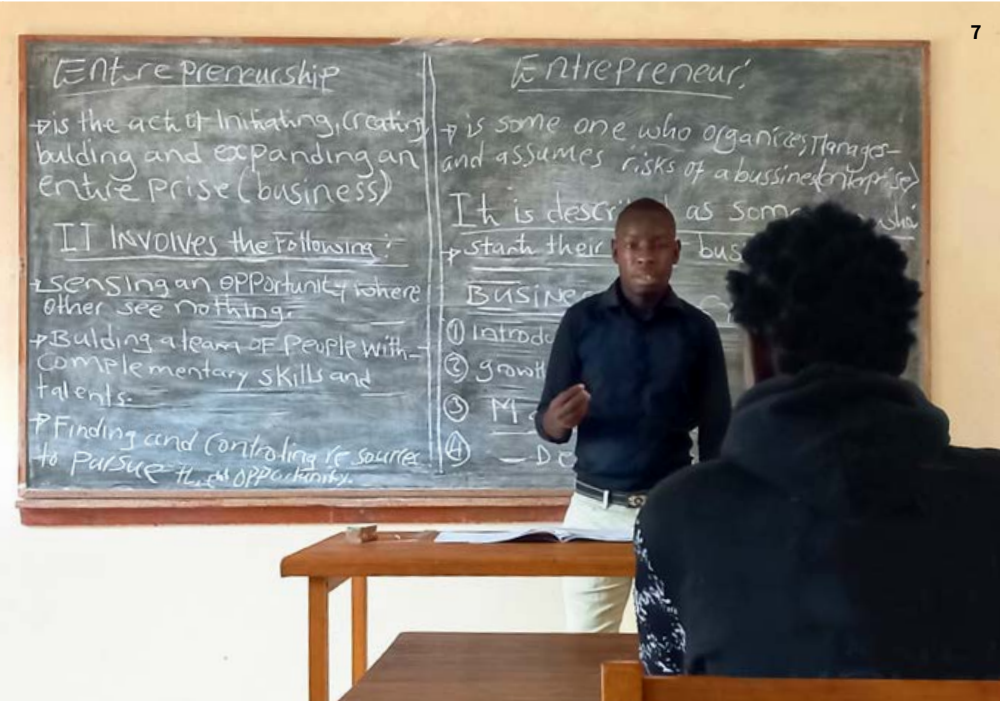 7
Entrepreneurship
is the act of Initiating, creating,
bulding and expanding an
enture prise (business)
IT INVOLVES the Following:
sensing an opportunity where
other see nothing.
Bulding a team of People with-
complementary skills and
talents.
Finding and controling re sources
to pursue the opportunity.
Entrepreneur:
is some one who organizes, Manages-
and assumes risks of a bussiness(enterprise)
It is as som who
start their bus
① introdu
② growth
③ M
④ - De